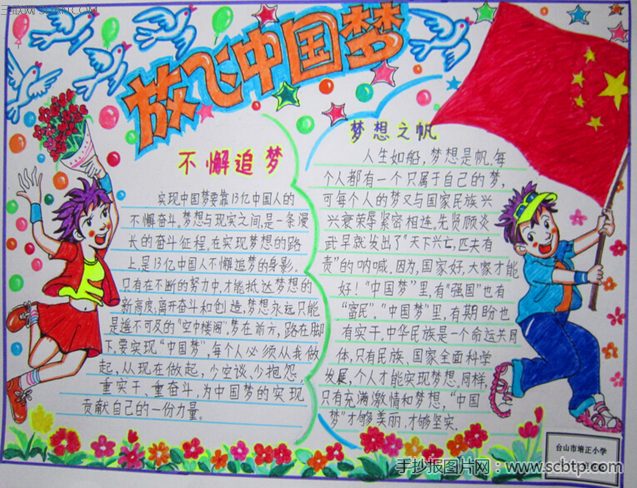 放飞中国梦
不懈追梦
实现中国梦要靠13亿中国人的
不懈奋斗。梦想与现实之间,是一条漫
长的奋斗征程,在实现梦想的路
上,是13亿中国人不懈追梦的身影。
只有在不断的努力中,才能抵达梦想的
新高度,离开奋斗和创造,梦想永远只能
是遥不可及的"空中楼阁"。梦在前方,路在脚
下。要实现"中国梦",每个人必须从我做
起,从现在做起,少空谈、少抱怨,
重实干、重奋斗,为中国梦的实现
贡献自己的一份力量。
梦想之帆
人生如船,梦想是帆。每
个人都有一个只属于自己的梦,
可每个人的梦又与国家民族兴
兴衰荣辱紧密相连。先贤顾炎
武早就发出了"天下兴亡,匹夫有
责"的呐喊。因为,国家好,大家才能
好!"中国梦"里,有"强国"也有
"富民"。"中国梦"里,有期盼也
有实干,中华民族是一个命运共同
体,只有民族、国家全面科学
发展,个人才能实现梦想。同样,
只有充满激情和梦想,"中国
梦"才够美丽,才够坚实。
台山市培正小学
手抄报图片网:www.scbtp.com